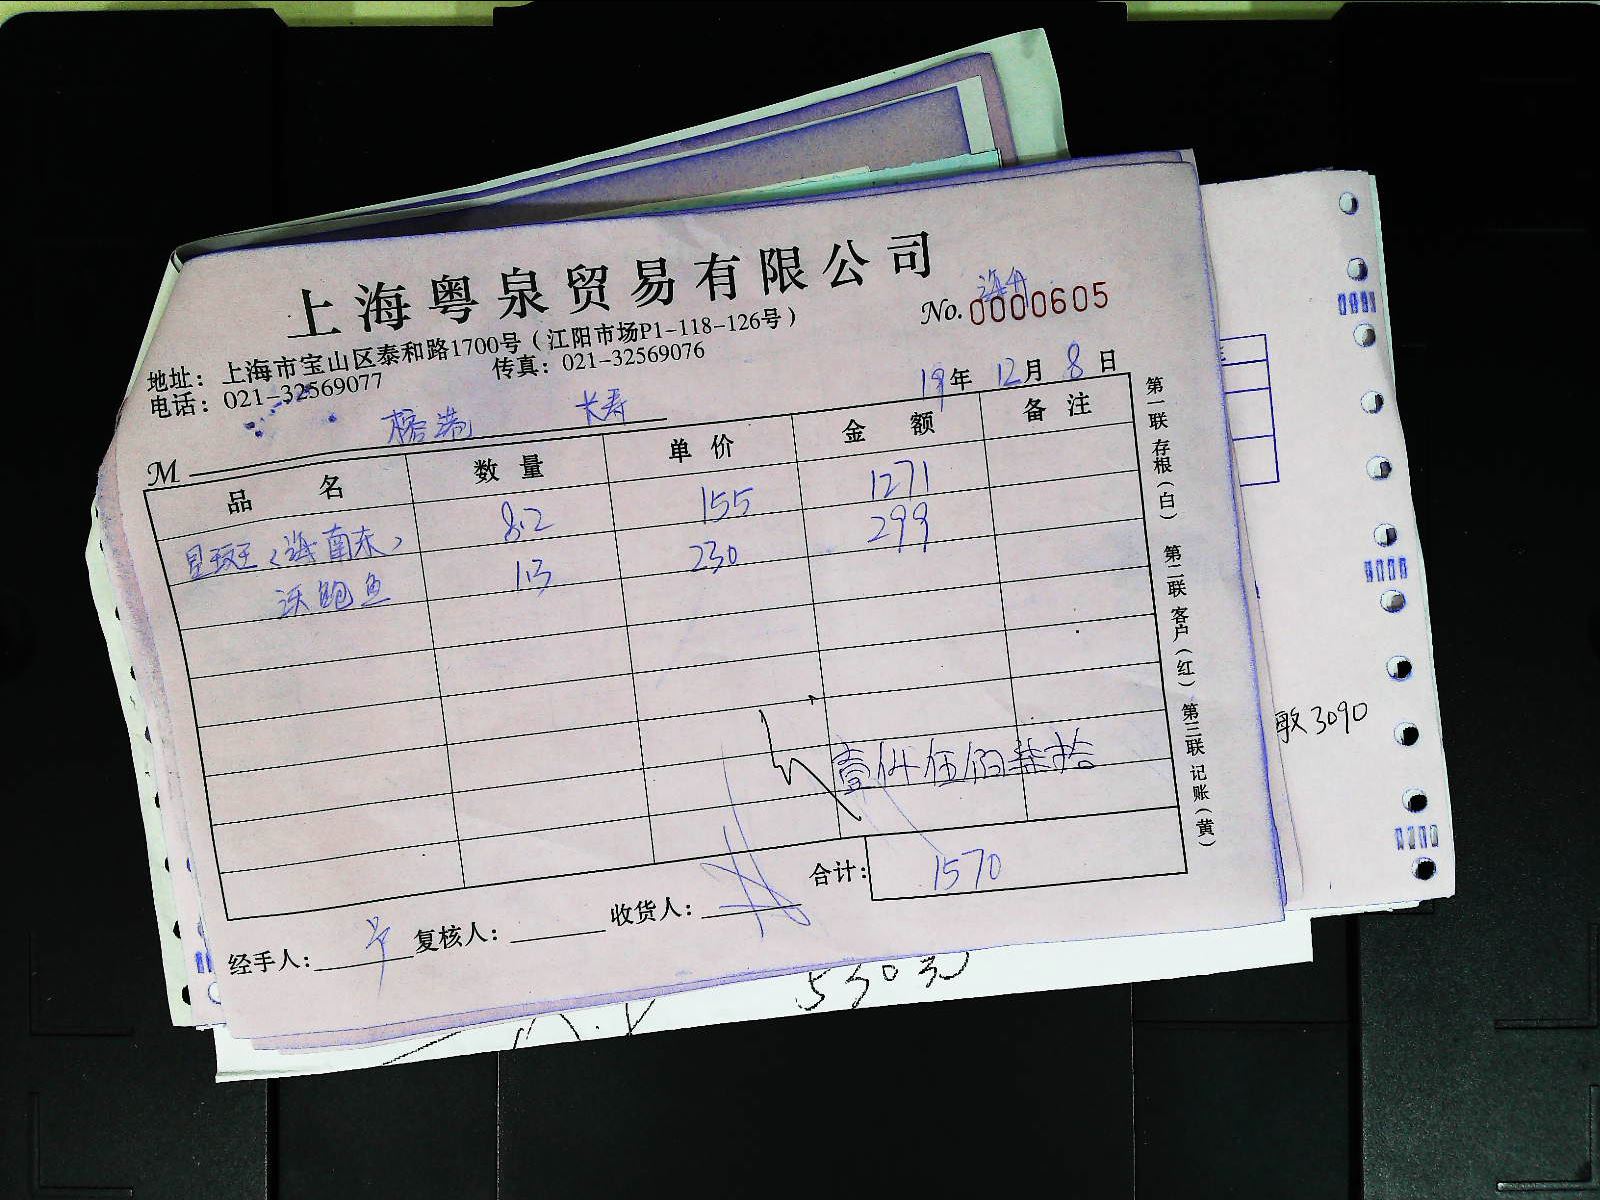 上海粤泉贸易有限公司
No.0000605
地址：上海市宝山区泰和路1700号（江阳市场P1-118-126号）
电话：021-32569077 传真：021-32569076
19年 12月 8日
M 榕港 长寿
品名 数量 单价 金额 备注
星斑（海南东） 8.2 155 1271
沃鲍鱼 1.3 230 299
壹仟伍佰柒拾
合计：1570
经手人： 复核人： 收货人：
第一联存根（白） 第二联客户（红） 第三联记账（黄）
3090